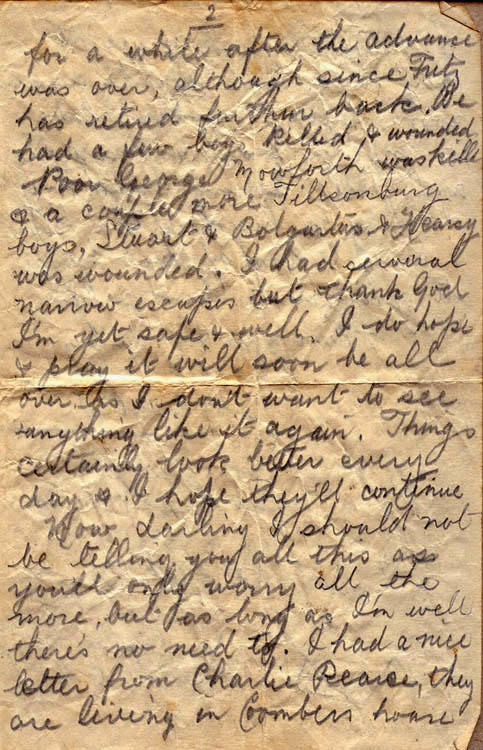 2
for a while after the advance
was over, although since Fritz
has retired further back. We
had a few boys killed & wounded
Poor George Mowforth was kille
& a couple more Tillsonburg
boys, Stuart & & Hearsey
was wounded. I had several
narrow escapes but thank God
I'm yet safe & well. I do hope
& pray it will soon be all
over, as I don't want to see
anything like it again. Things
certainly look better every
day & I hope they'll continue
Now darling I should not
be telling you all this as
you'll only worry all the
more, but as long as I'm well
there's no need to. I had a nice
letter from Charlie Pearce, they
are living in Coombers house